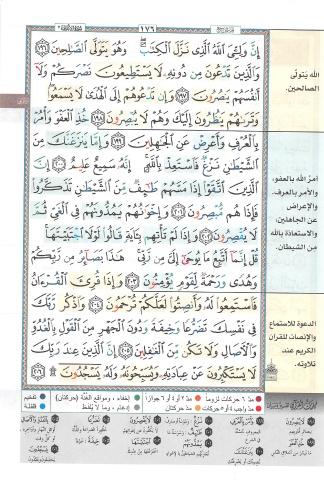 ١٧٦
إِنَّ وَلِـِّۧيَ ٱللَّهُ ٱلَّذِى نَزَّلَ ٱلْكِتَٰبَ ۖ وَهُوَ يَتَوَلَّى ٱلصَّٰلِحِينَ ١٩٦
وَٱلَّذِينَ تَدْعُونَ مِن دُونِهِۦ لَا يَسْتَطِيعُونَ نَصْرَكُمْ وَلَآ
أَنفُسَهُمْ يَنصُرُونَ ١٩٧ وَإِن تَدْعُوهُمْ إِلَى ٱلْهُدَىٰ لَا يَسْمَعُوا۟ ۖ
وَتَرَىٰهُمْ يَنظُرُونَ إِلَيْكَ وَهُمْ لَا يُبْصِرُونَ ١٩٨ خُذِ ٱلْعَفْوَ وَأْمُرْ
بِٱلْعُرْفِ وَأَعْرِضْ عَنِ ٱلْجَٰهِلِينَ ١٩٩ وَإِمَّا يَنزَغَنَّكَ مِنَ
ٱلشَّيْطَٰنِ نَزْغٌ فَٱسْتَعِذْ بِٱللَّهِ ۚ إِنَّهُۥ سَمِيعٌ عَلِيمٌ ٢٠٠ إِنَّ
ٱلَّذِينَ ٱتَّقَوْا۟ إِذَا مَسَّهُمْ طَٰٓئِفٌ مِّنَ ٱلشَّيْطَٰنِ تَذَكَّرُوا۟
فَإِذَا هُم مُّبْصِرُونَ ٢٠١ وَإِخْوَٰنُهُمْ يَمُدُّونَهُمْ فِى ٱلْغَىِّ ثُمَّ
لَا يُقْصِرُونَ ٢٠٢ وَإِذَا لَمْ تَأْتِهِم بِـَٔايَةٍ قَالُوا۟ لَوْلَا ٱجْتَبَيْتَهَا ۚ
قُلْ إِنَّمَآ أَتَّبِعُ مَا يُوحَىٰٓ إِلَىَّ مِن رَّبِّى ۚ هَٰذَا بَصَآئِرُ مِن رَّبِّكُمْ
وَهُدًى وَرَحْمَةٌ لِّقَوْمٍ يُؤْمِنُونَ ٢٠٣ وَإِذَا قُرِئَ ٱلْقُرْءَانُ
فَٱسْتَمِعُوا۟ لَهُۥ وَأَنصِتُوا۟ لَعَلَّكُمْ تُرْحَمُونَ ٢٠٤ وَٱذْكُر رَّبَّكَ
فِى نَفْسِكَ تَضَرُّعًا وَخِيفَةً وَدُونَ ٱلْجَهْرِ مِنَ ٱلْقَوْلِ بِٱلْغُدُوِّ
وَٱلْءَاصَالِ وَلَا تَكُن مِّنَ ٱلْغَٰفِلِينَ ٢٠٥ إِنَّ ٱلَّذِينَ عِندَ رَبِّكَ
لَا يَسْتَكْبِرُونَ عَنْ عِبَادَتِهِۦ وَيُسَبِّحُونَهُۥ وَلَهُۥ يَسْجُدُونَ ۩ ٢٠٦
الله يَتولّى
الصالحين.
أمرُ الله بالعفو،
والأمر بالعرف،
والإعراض
عن الجاهلين،
والاستعاذة بالله
من الشيطان.
الدعوة للاستماع
والإنصات للقرآن
الكريم عند
تلاوته.
مد ٦ حركات لزوماً مد ٢ أو ٤ أو ٦ جوازاً إخفاء، ومواقع الغُنَّة (حركتان) تفخيم
مد واجب ٤ أو ٥ حركات مد حركتان إدغام، وما لا يُلفظ قلقلة